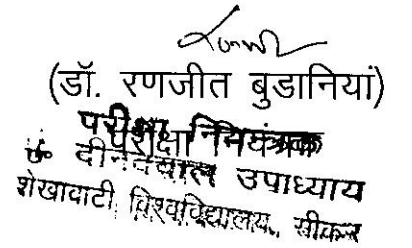 (डॉ. रणजीत बुडानियां)
परीक्षा नियंत्रक
पं. दीनदयाल उपाध्याय
शेखावाटी विश्वविद्यालय, सीकर